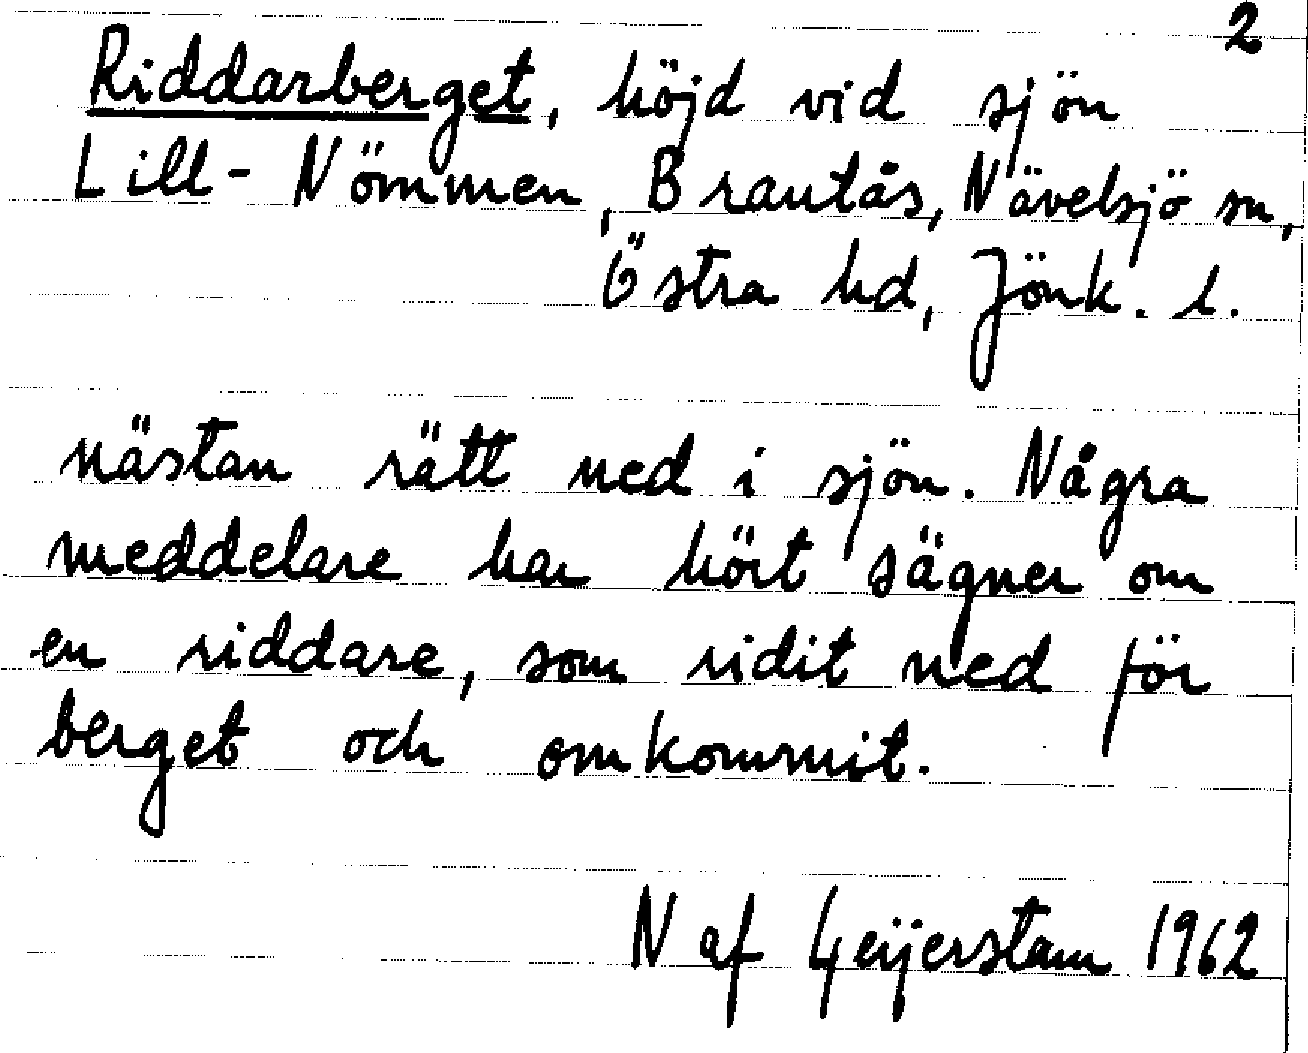 2
Riddarberget, höjd vid sjön
Lill-Nömmen, Brautås, Nävelsjö sn,
Östra hd, Jönk. l.
nästan rätt ned i sjön. Några
meddelare har hört sägner om
en riddare, som ridit ned för
berget och omkommit.
N af Geijerstam 1962